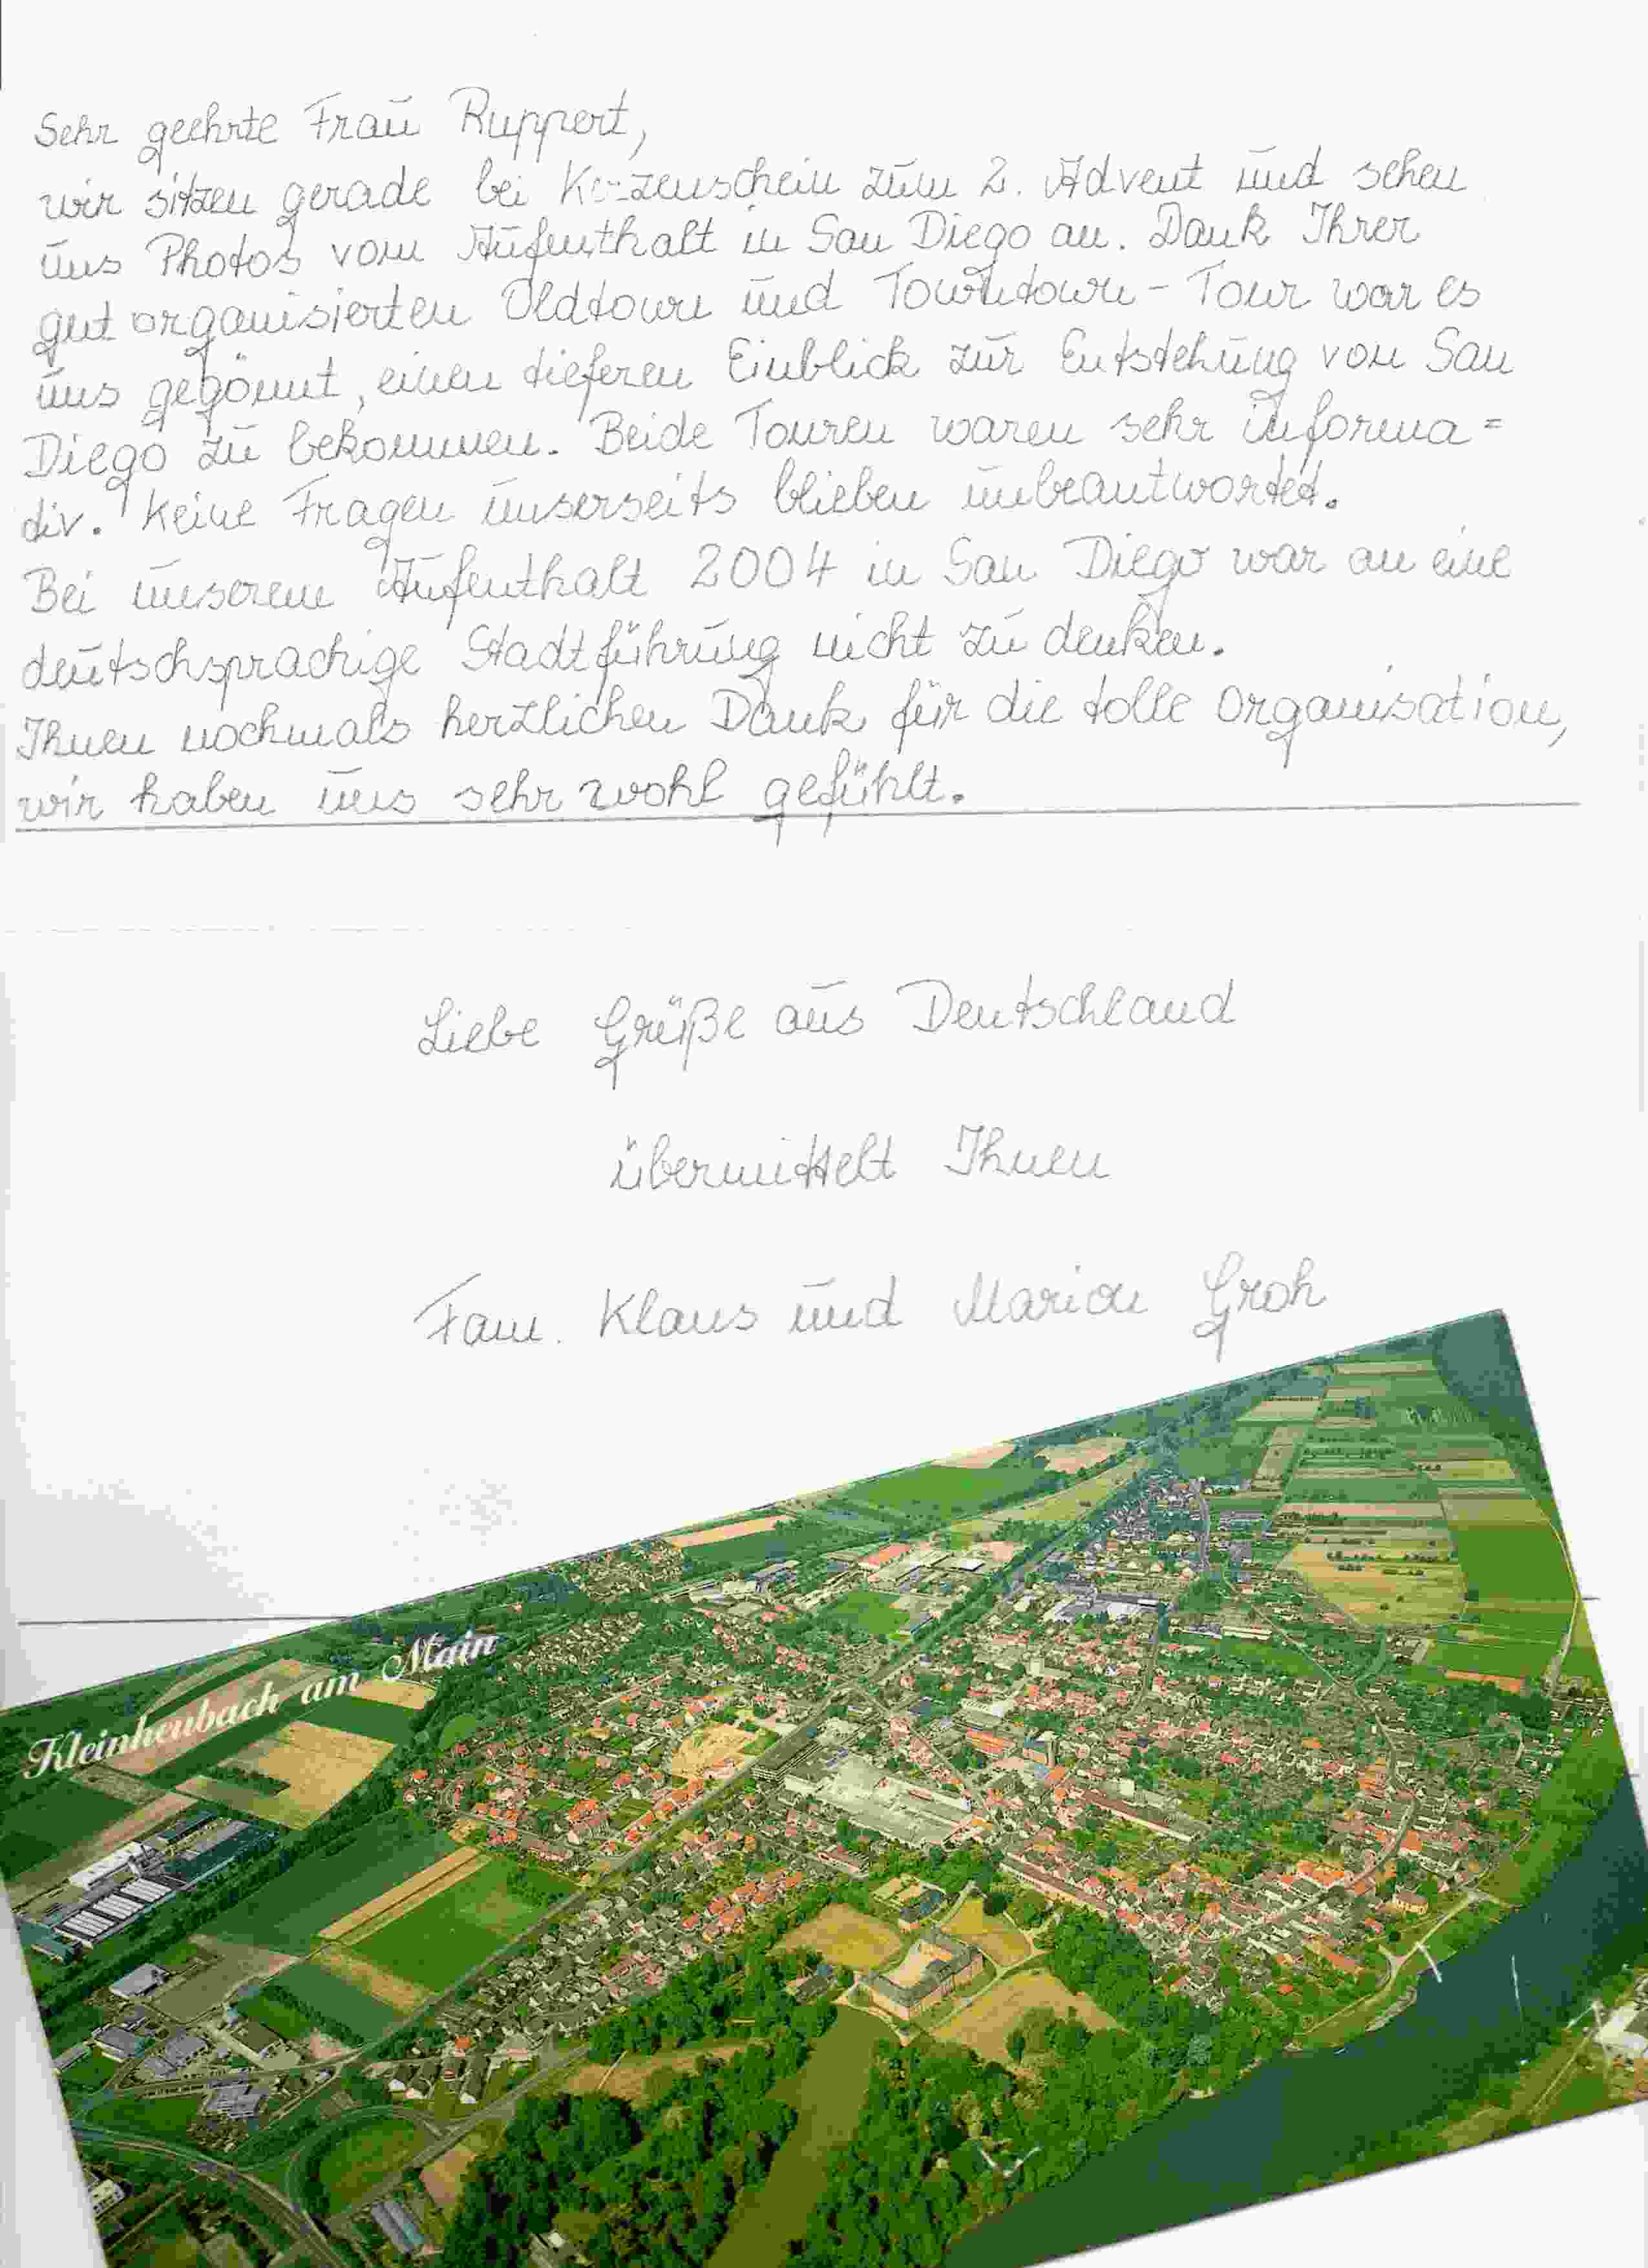 Sehr geehrte Frau Ruppert,
wir sitzen gerade bei Kerzenschein zum 2. Advent und sehen
uns Photos vom Aufenthalt in San Diego an. Dank Ihrer
gut organisierten Oldtown und Towntown-Tour war es
uns gegönnt, einen tieferen Einblick zur Entstehung von San
Diego zu bekommen. Beide Touren waren sehr informa=
tiv. Keine Fragen unserseits blieben unbeantwortet.
Bei unserem Aufenthalt 2004 in San Diego war an eine
deutschsprachige Stadtführung nicht zu denken.
Ihnen nochmals herzlichen Dank für die tolle Organisation,
wir haben uns sehr wohl gefühlt.
Liebe Grüße aus Deutschland
übermittelt Ihnen
Fam. Klaus und Marion Groh
Kleinheubach am Main